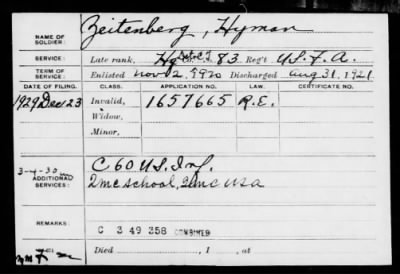 NAME OF SOLDIER: Zeitenberg, Hyman
SERVICE: Late rank, Hq Det Co. 83 Reg't U.S.F.A.
TERM OF SERVICE: Enlisted Nov 12, 1920 Discharged Aug 31, 1921
DATE OF FILING. CLASS. APPLICATION NO. LAW. CERTIFICATE NO.
1929 Dec 23 Invalid, 1657665 R.E.
Widow,
Minor,
3-4-30 C 60 U.S. Inf.
ADDITIONAL SERVICES: 2 mc school, Qmc USA
REMARKS: C 3 49 358 COMBINED
Died , 1 , at